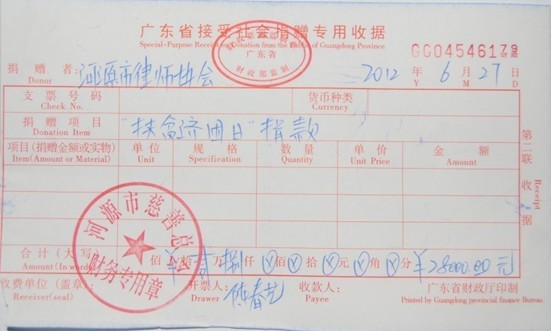 广东省接受社会捐赠专用收据
Special-Purpose Receipt Donation from the Public of Guangdong Province
广东省
财政部监制
GG04546179
捐赠者:河源市律师协会 2012年6月27日
Donor Y M D
支票号码 货币种类
Check No. Currency
捐赠项目 "扶贫济困日"捐款
Donation Item
项目(捐赠金额或实物) 单位 规格 数量 单价 金额
Item(Amount or Material) Unit Specification Quantity Unit Price Amount
第二联 收据
Receipt
河源市慈善总会
财务专用章
合计(大写) 佰 拾贰万捌仟 佰 拾 元 角 分 ¥28000.00元
Amount(In words)
收费单位(盖章): 开票人: 收款人: 广东省财政厅印制
Receiver(seal) Drawer Payee Printed by Guangdong provincial finance Bureau